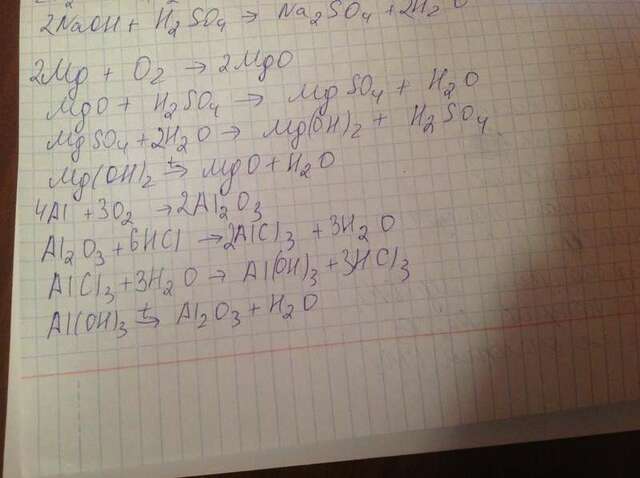 2NaOH + H2SO4 → Na2SO4 + 2H2O
2Mg + O2 → 2MgO
MgO + H2SO4 → MgSO4 + H2O
MgSO4 + 2H2O → Mg(OH)2 + H2SO4
Mg(OH)2 t→ MgO + H2O
4Al + 3O2 → 2Al2O3
Al2O3 + 6HCl → 2AlCl3 + 3H2O
AlCl3 + 3H2O → Al(OH)3 + 3HCl3
Al(OH)3 t→ Al2O3 + H2O